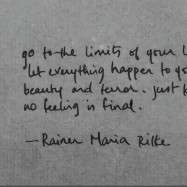 go to the limits of your
let everything happen to
beauty and terror. just
no feeling is final.
—Rainer Maria Rilke